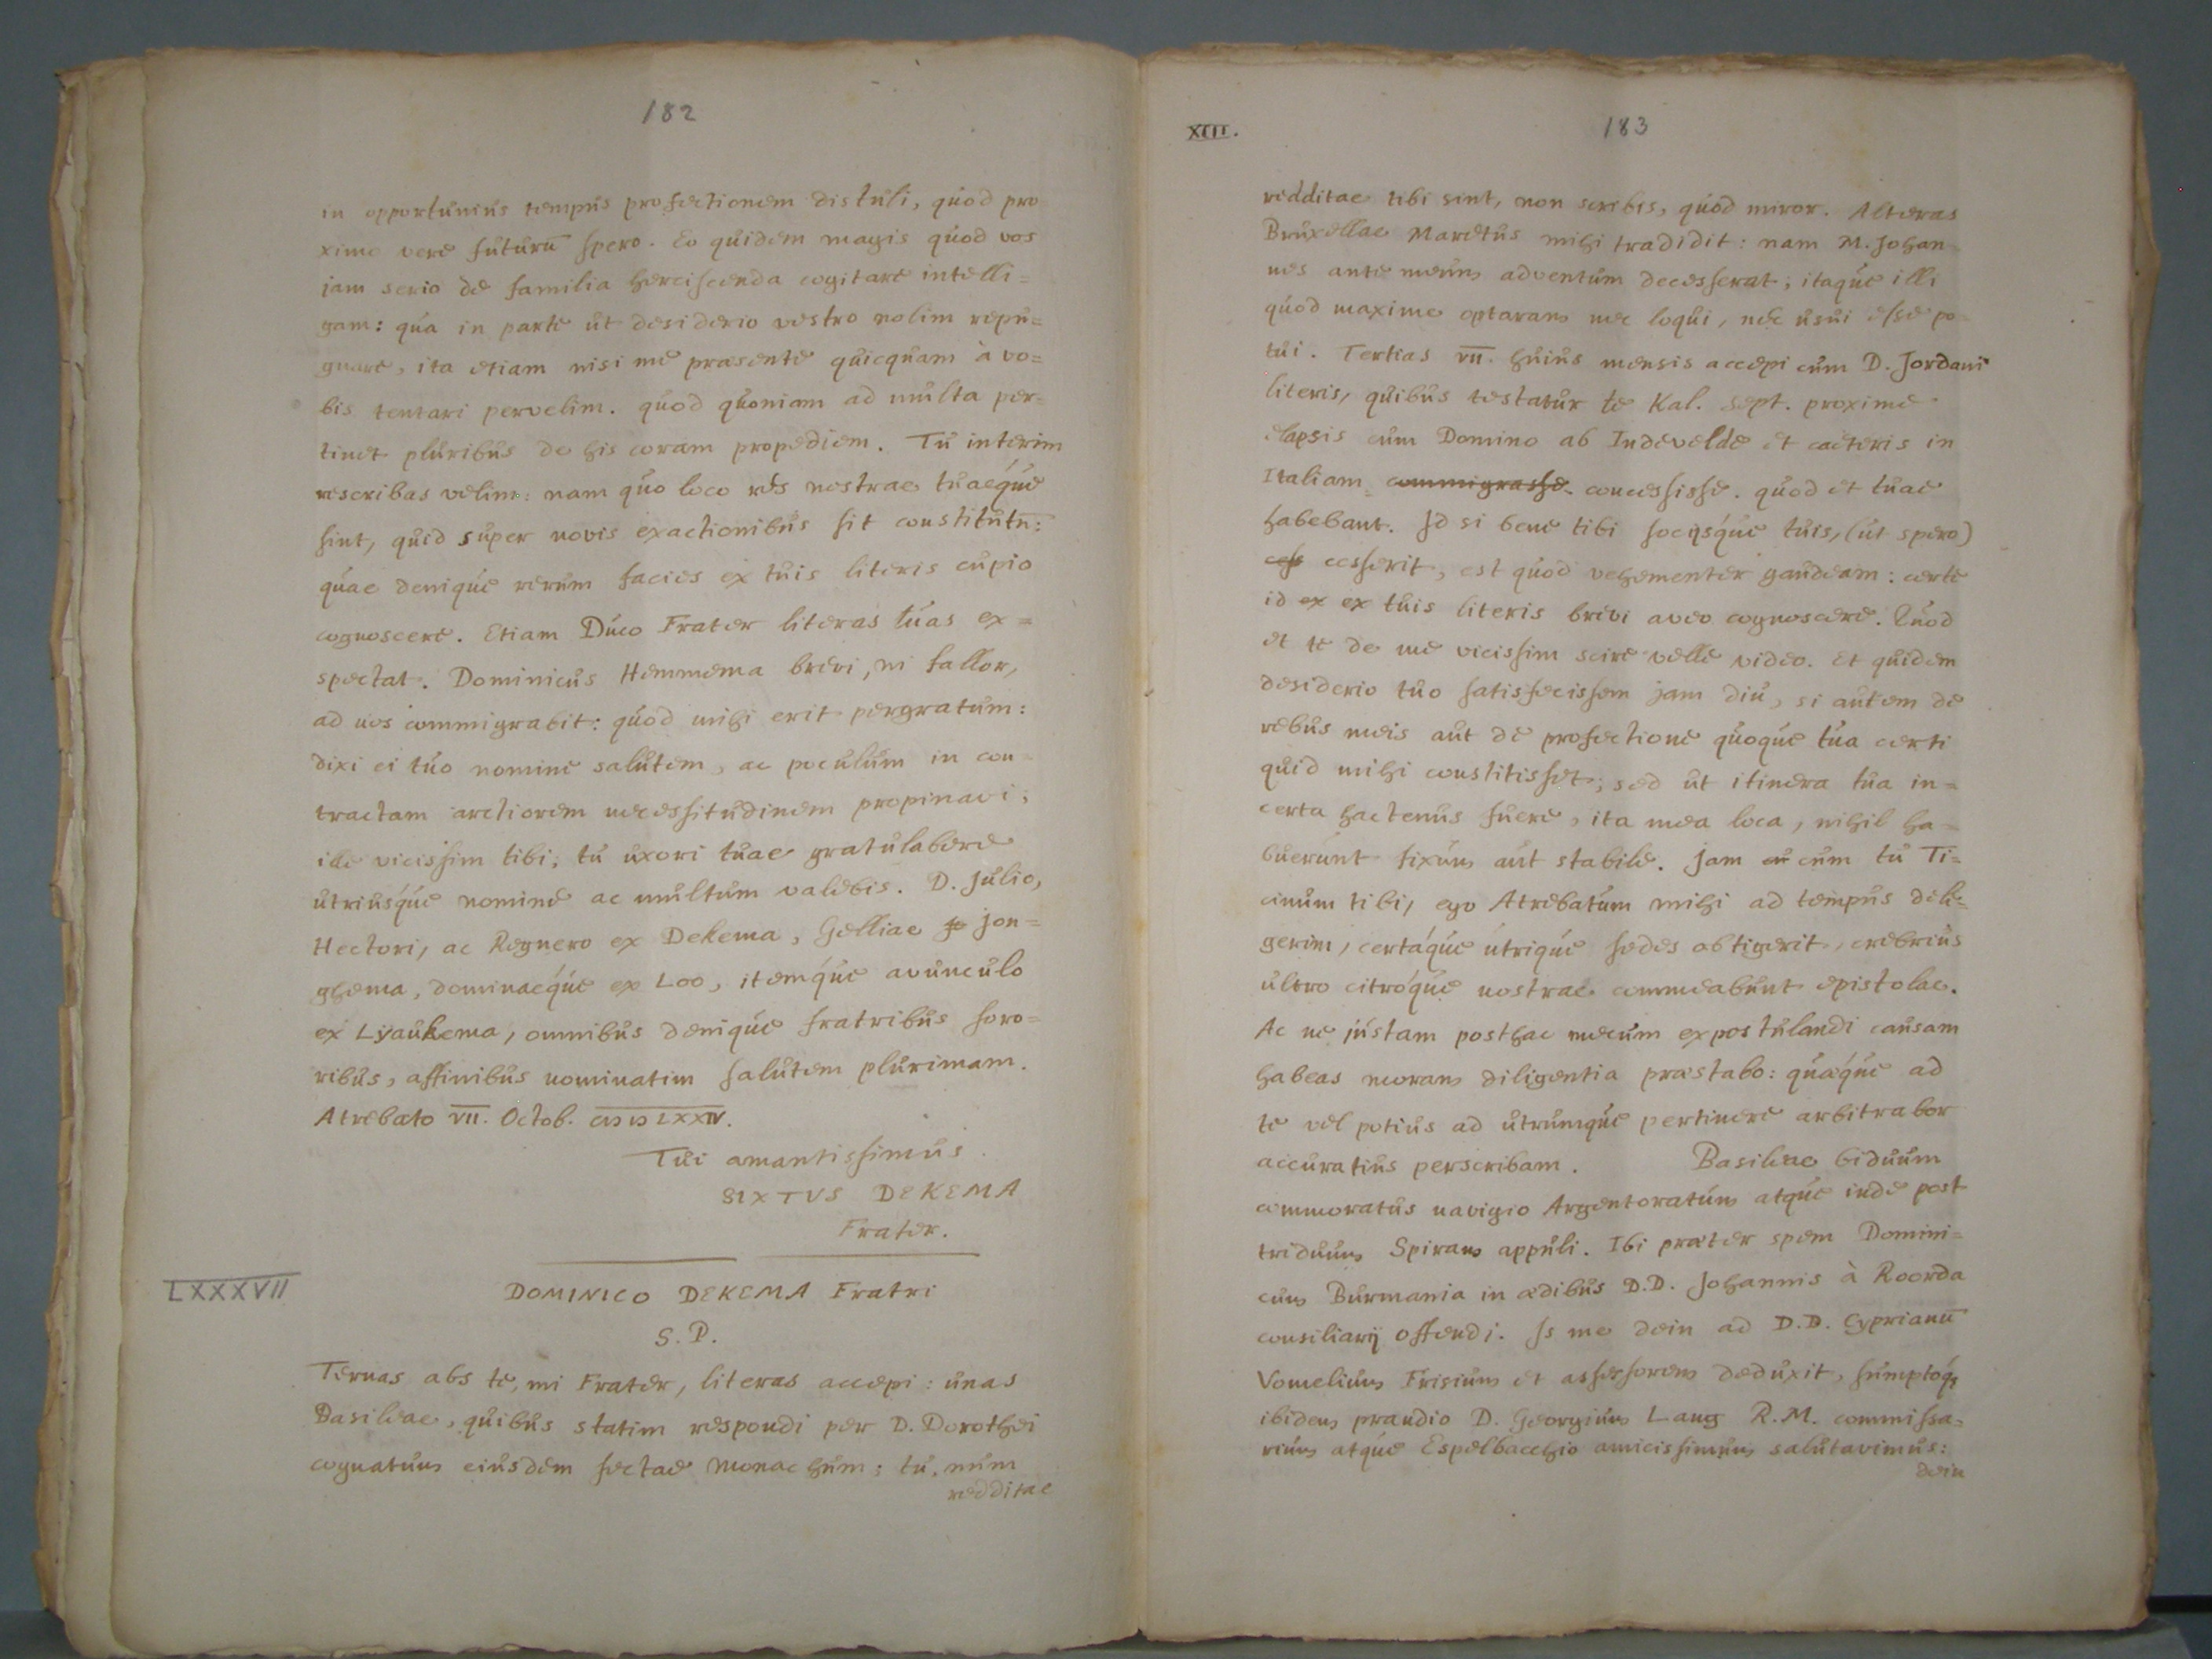 182
in opportunius tempus profectionem distuli, quod pro
ximo vere futurū spero. Eo quidem magis quod vos
jam serio de familia herciscenda cogitare intelli=
gam: qua in parte ut desiderio vestro nolim repu=
gnare, ita etiam nisi me praesente quicquam à vo=
bis tentari pervelim. quod quoniam ad multa per=
tinet pluribus de his coram propediem. Tu interim
rescribas velim: nam quo loco res nostrae tuaeque
sint, quid super novis exactionibus sit constitutū:
quae denique rerum facies ex tuis literis cupio
cognoscere. Etiam Duco Frater literas tuas ex=
spectat. Dominicus Hemmema brevi, ni fallor,
ad nos commigrabit: quod mihi erit pergratum:
dixi ei tuo nomine salutem, ac poculum in con=
tractam arctiorem necessitudinem propinavi;
ille vicissim tibi, tu uxori tuae gratulabere
utriusque nomine ac multum valebis. D. Julio,
Hectori, ac Regnero ex Dekema, Gelliae Jon=
ghema, dominaeque ex Loo, itemque avunculo
ex Lyaukema, omnibus denique fratribus soro=
ribus, affinibus nominatim salutem plurimam.
Atrebato VII. Octob. CIƆ IƆ LXXIV.
Tui amantissimus.
SIXTVS DEKEMA
Frater.
LXXXVII
DOMINICO DEKEMA Fratri
S. P.
Ternas abs te, mi Frater, literas accepi: unas
Basileae, quibus statim respondi per D. Dorothei
cognatum eiusdem sectae monachum; tu, num
redditae
XIII.
183
redditae tibi sint, non scribis, quod miror. Alteras
Bruxellae Maretus mihi tradidit: nam M. Johan=
nes ante meum adventum decesserat; itaque illi
quod maxime optaram nec loqui, nec usui esse po=
tui. Tertias VII. huius mensis accepi cum D. Jordani
literis, quibus testatur te Kal. Sept. proxime
elapsis cum Domino ab Indevelde et caeteris in
Italiam commigrasse concessisse. quod et tuae
habebant. Id si bene tibi socijsque tuis, (ut spero)
cess cesserit, est quod vehementer gaudeam: certe
id ex ex tuis literis brevi aveo cognoscere. Quod
et te de me vicissim scire velle video. Et quidem
desiderio tuo satisfecissem jam diu, si autem de
rebus meis aut de profectione quoque tua certi
quid mihi constitisset; sed ut itinera tua in=
certa hactenus fuere, ita mea loca, nihil ha=
buerunt fixum aut stabile. Jam cum tu Ti=
cinum tibi, ego Atrebatum mihi ad tempus dele=
gerim, certaque utrique sedes obtigerit, crebrius
ultro citroque nostrae commeabunt epistolae.
Ac ne justam posthac mecum expostulandi causam
habeas moram diligentia praestabo: quaeque ad
te vel potius ad utrumque pertinere arbitrabor
accuratius perscribam. Basileae biduum
commoratus navigio Argentoratum atque inde post
triduum Spiram appuli. Ibi praeter spem Domini=
cum Burmania in aedibus D.D. Johannis à Roorda
consiliarij offendi. Is me dein ad D.D. Cyprianū
Vomelium Frisium et assessorem deduxit, sumptoq;
ibidem prandio D. Georgium Lang R. M. commissa=
rium atque Espelbacchio amicissimum salutavimus:
dein